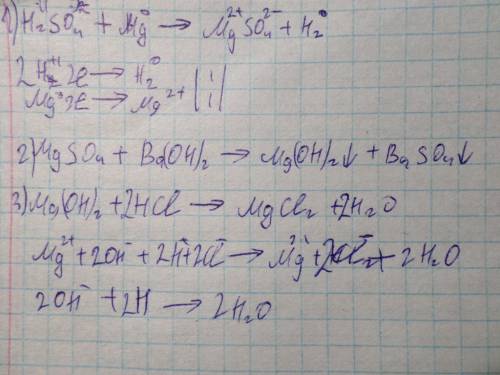 1) H₂SO₄ + Mg⁰ → Mg²⁺SO₄²⁻ + H₂⁰
2H⁺ 2e → H₂⁰ | 1 |
Mg⁰ 2e → Mg²⁺ | 1 |
2) MgSO₄ + Ba(OH)₂ → Mg(OH)₂↓ + BaSO₄↓
3) Mg(OH)₂ + 2HCl → MgCl₂ + 2H₂O
Mg²⁺ + 2OH⁻ + 2H⁺ + 2Cl⁻ → Mg²⁺ + 2Cl⁻ + 2H₂O
2OH⁻ + 2H → 2H₂O